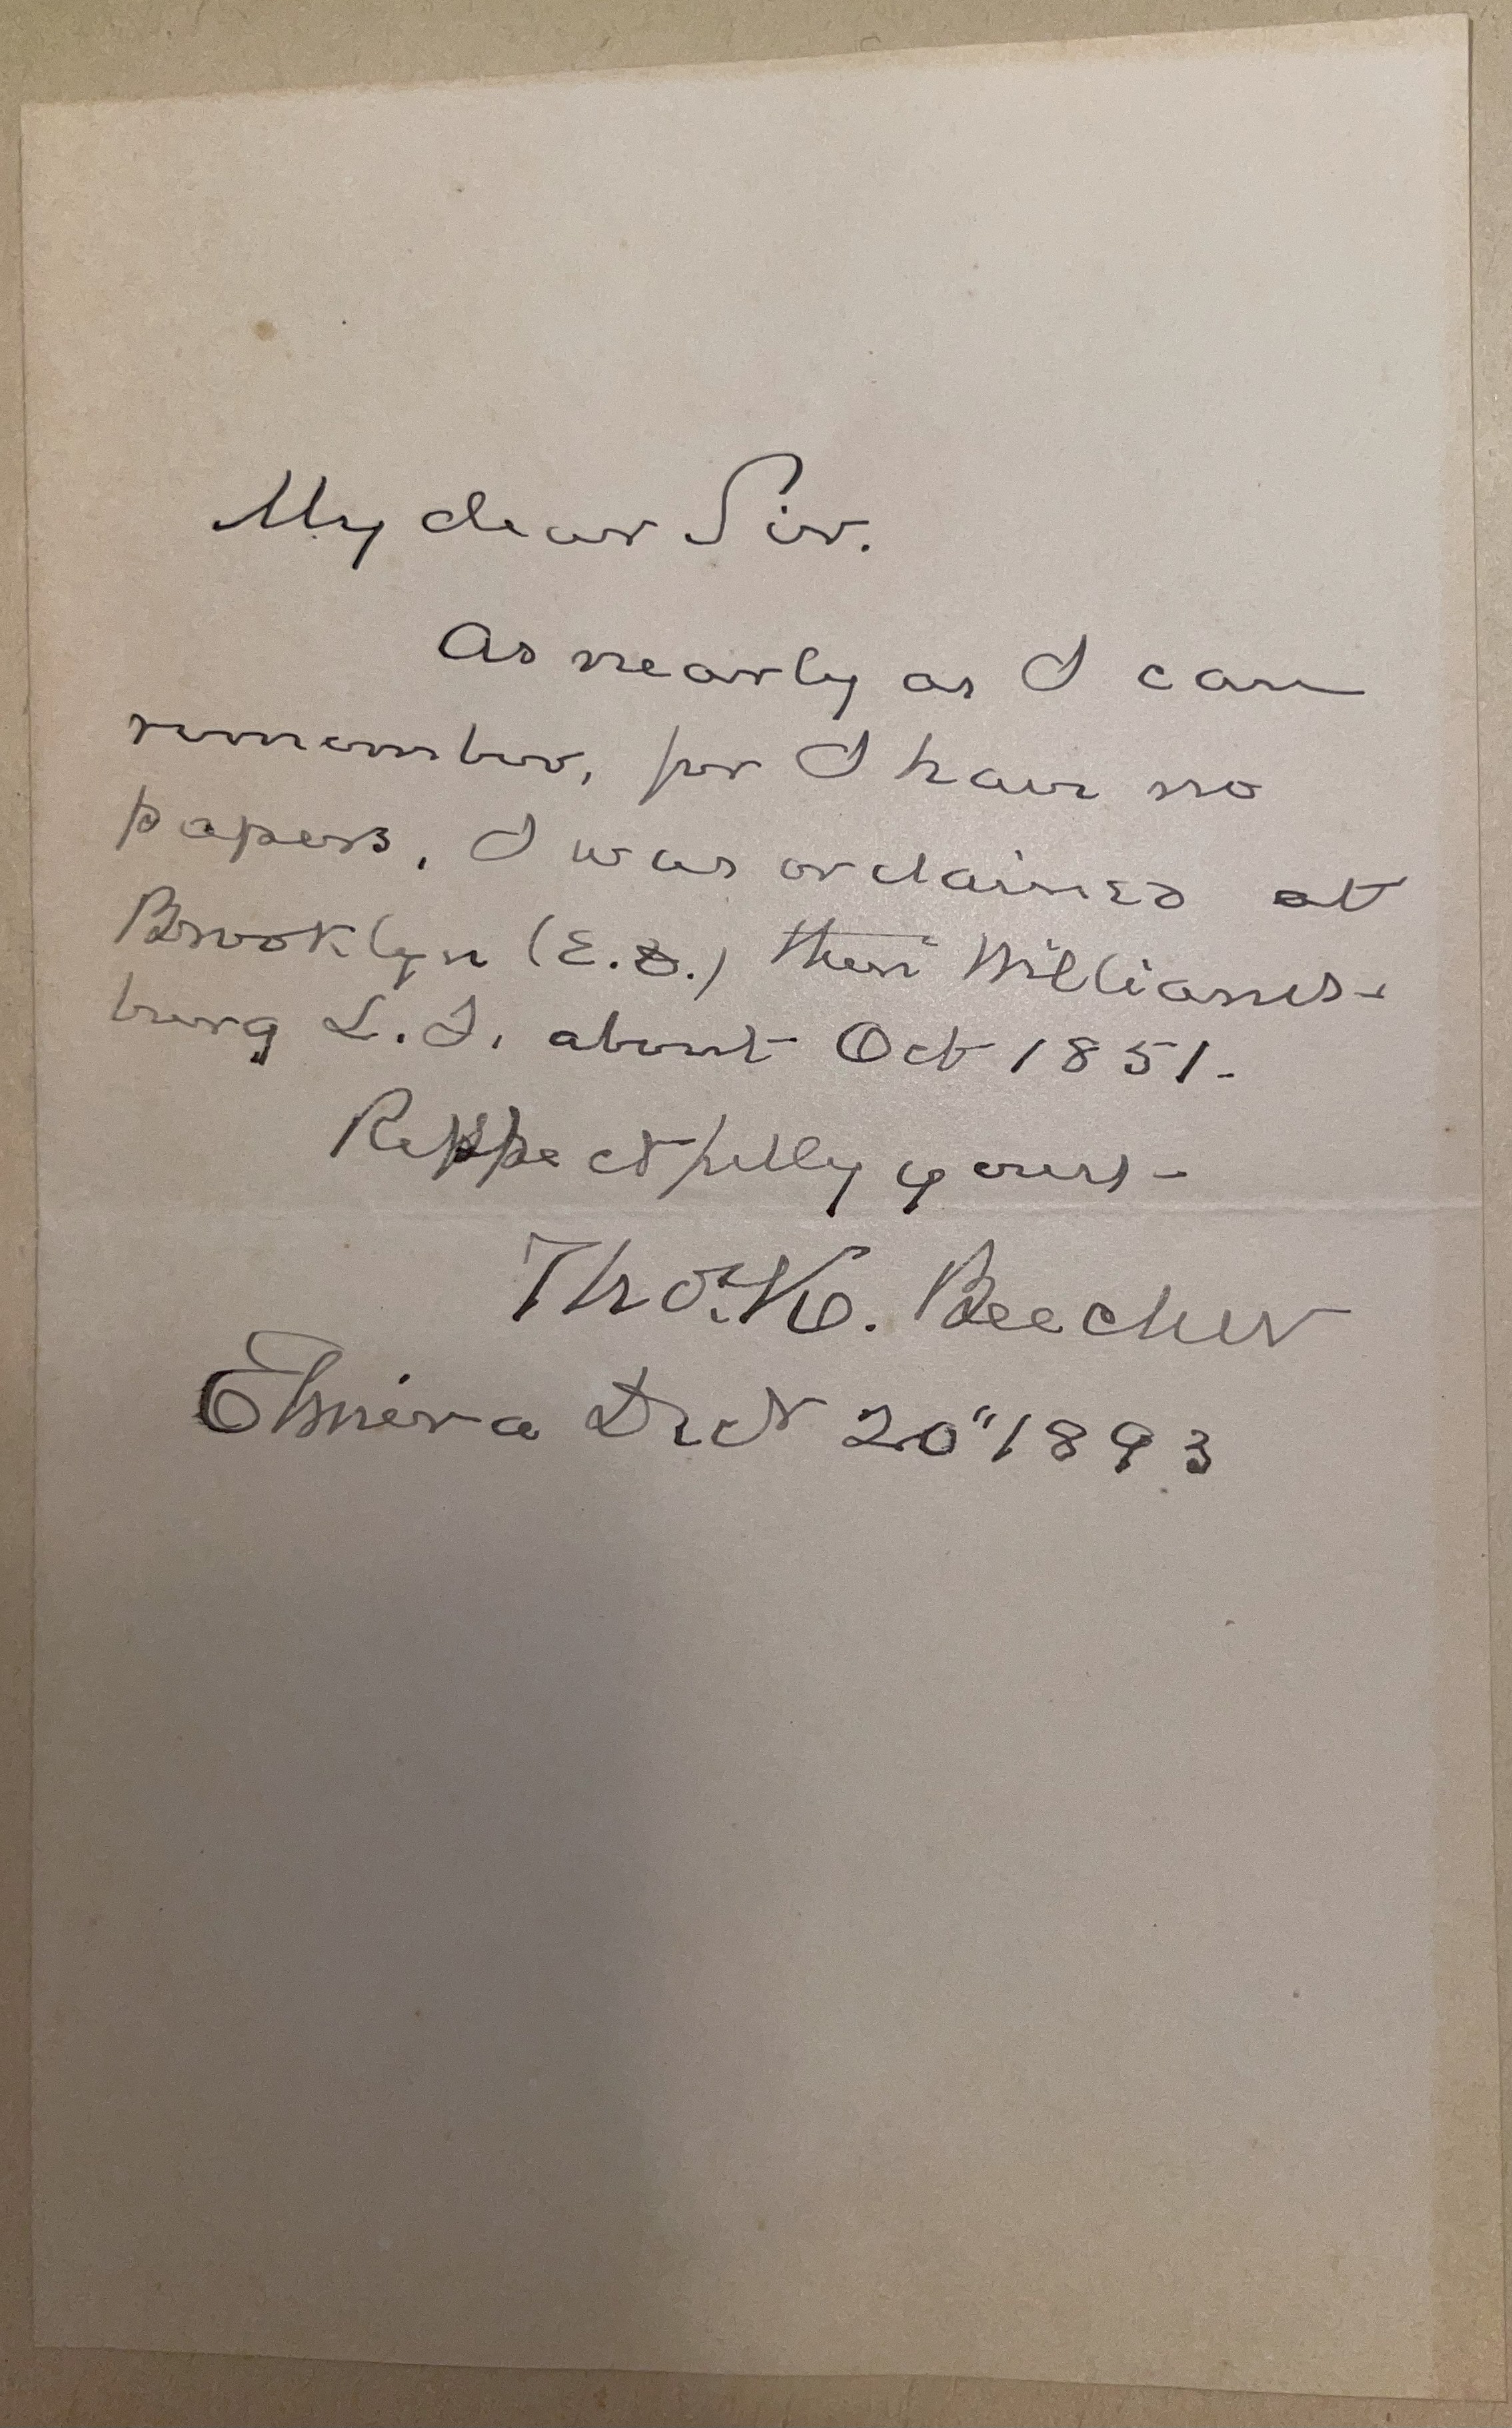 My dear Sir.
As nearly as I can
remember, for I have no
papers, I was ordained at
Brooklyn (E.D.) then Williams-
burg L.I. about Oct 1851.
Respectfully yours-
Thos. K. Beecher
Elmira Oct 20" 1893